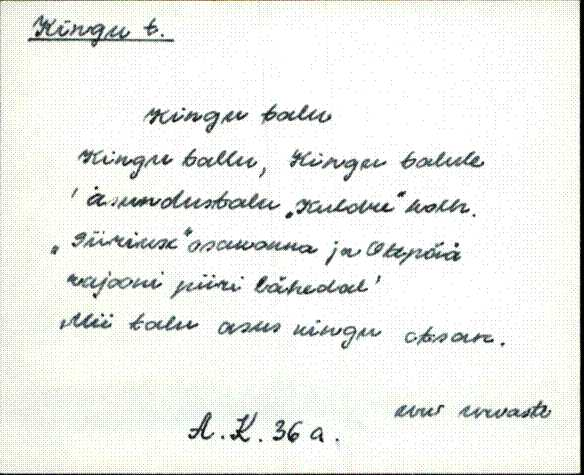 Kingu t.
Kingu talu
Kingu tallu, Kingu talule
'asundustalu „Kuldre" kolh.
osakonna ja Otepää
rajooni piiri lähedal'
Mii talu asus kingu otsan.
A. K. 36 a. Urvaste